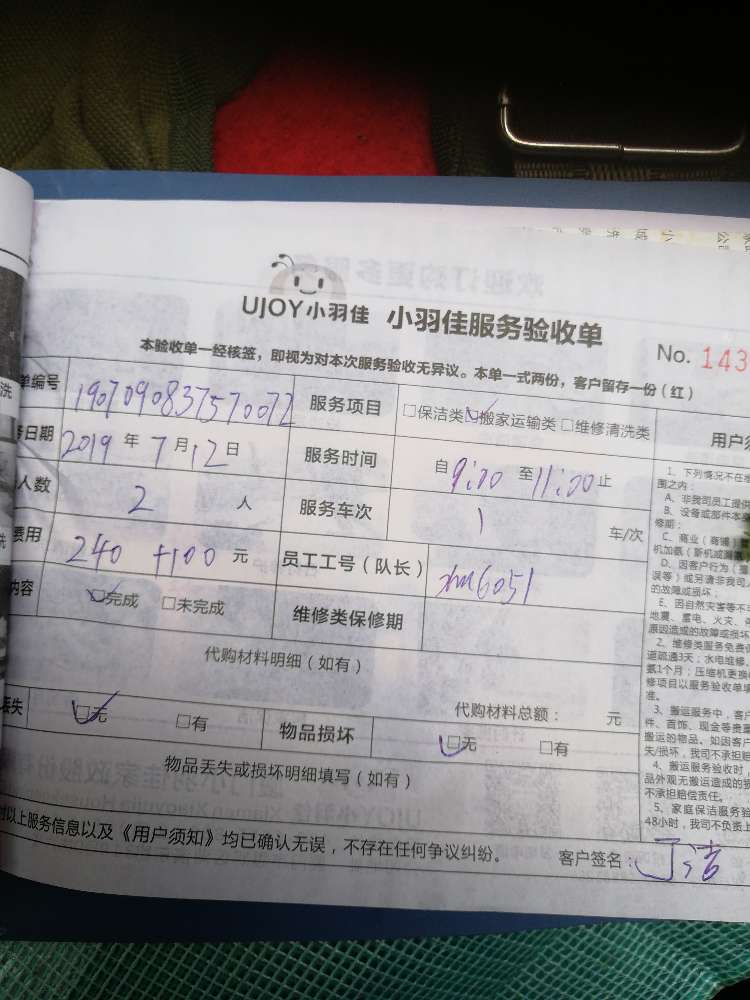 UJOY小羽佳 小羽佳服务验收单
No. 143
本验收单一经核签，即视为对本次服务验收无异议。本单一式两份，客户留存一份（红）
单编号 1907090837570072 服务项目 □保洁类 ☑搬家运输类 □维修清洗类
日期 2019 年 7 月 12 日 服务时间 自 9:00 至 11:00 止
人数 2 人 服务车次 1 车/次
费用 240 +100 元 员工工号（队长） xm6051
内容 ☑完成 □未完成 维修类保修期
代购材料明细（如有）
代购材料总额： 元
丢失 ☑无 □有 物品损坏 ☑无 □有
物品丢失或损坏明细填写（如有）
以上服务信息以及《用户须知》均已确认无误，不存在任何争议纠纷。 客户签名：
用户须
1、下列情况不在
围之内：
A、非我司员工提供
B、设备或部件本
修期；
C、商业（商铺）
机加氨（新机或
D、因客户行为
误等）或另请非我司
的故障或损坏；
E、因自然灾害等不
地震、雷电、火灾、
原因造成的故障或损坏
2、维修类服务免费
道疏通3天；水电维修
氨1个月；压缩机更换
修项目以服务验收单
准。
3、搬运服务中，客
件、首饰、现金等贵重
搬运的物品。如因客户
失/损坏，我司不承担
4、搬运服务验收时，
品外观无搬运造成的损
不承担赔偿责任。
5、家庭保洁服务验
48小时，我司不负责
洗
洗